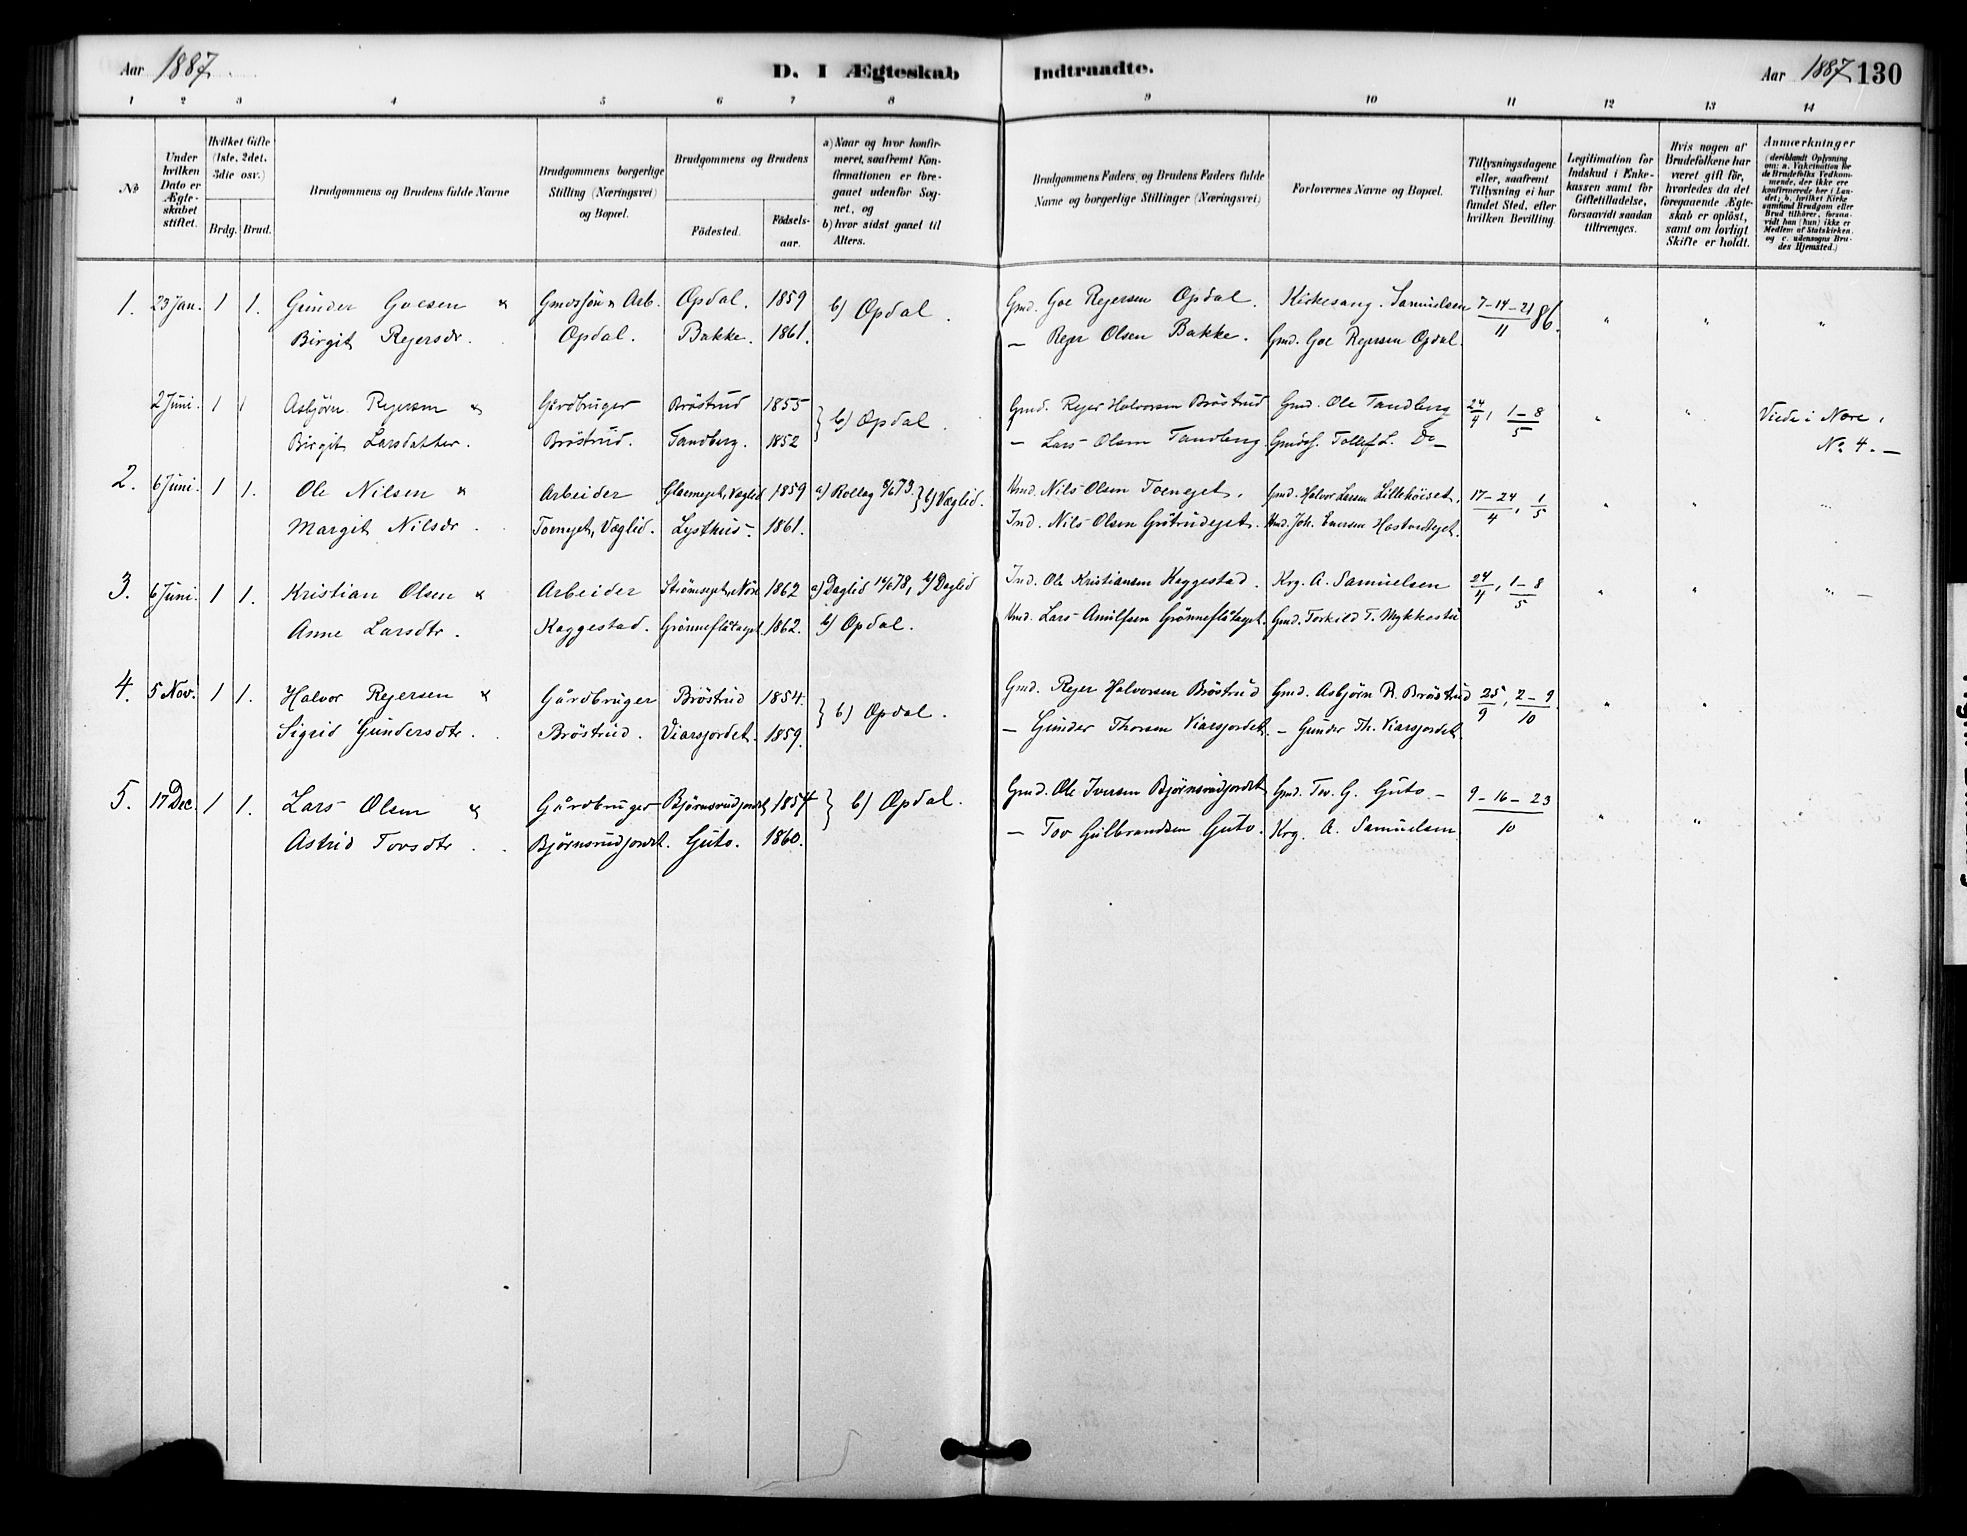 Aar 1887. D. I Ægteskab Indtraadte. Aar 1887 130
1 2 3 4 5 6 7 8 9 10 11 12 13 14
No
Under hvilken Dato er Ægteskabet stiftet.
Hvilket Gifte (1ste, 2det, 3die osv.)
Brdg. Brud.
Brudgommens og Brudens fulde Navne
Brudgommens borgerlige Stilling (Næringsvei) og Bopæl.
Brudgommens og Brudens
Födested. Födselsaar.
a) Naar og hvor konfirmeret, saafremt Konfirmationen er foregaaet udenfor Sognet, og
b) hvor sidst gaaet til Alters.
Brudgommens Faders, og Brudens Faders fulde Navne og borgerlige Stillinger (Næringsvei)
Forlovernes Navne og Bopæl.
Tillysningsdagene eller, saafremt Tillysning ei har fundet Sted, efter hvilken Bevilling.
Legitimation for Indskud i Enkekassen samt for Giftetilladelse, forsaavidt saadan tiltrænges.
Hvis nogen af Brudefolkene har været gift før, hvorledes da det foregaaende Ægteskab er opløst, samt om lovligt Skifte er holdt.
Anmærkninger
(deriblandt Oplysning om: a. Vakcination for de Brudefolks Vedkommende, der ikke ere konfirmerede her i Landet; b. hvilket Kirkesamfund Brudgom eller Brud tilhörer, forsaavidt han (hun) ikke er Medlem af Statskirken. og c. udensogns Brudes Hjemsted.)
1. 23 Jan. 1 1. Gunder Goesen & Gmdssøn & Arb. Opdal. 1859 b) Opdal. Gmd. Goe Rejersen Opdal. Kirkesang. Samuelsen 7-14-21/11 86. " " "
Birgit Rejersdr. Opdal. Bakke. 1861. — Rejer Olsen Bakke. Gmd. Goe Rejersen Opdal.
2 Juni. 1 1 Asbjørn Rejersen & Gårdbruger Bröstrud 1855 } b) Opdal. Gmd. Rejer Halvorsen Bröstrud Gmd. Ole Tandberg 24/4, 1-8/5 " " Viede i Nore,
Birgit Larsdatter. Bröstrud. Tandberg. 1852 — Lars Olsen Tandberg. Gmdss. Tollef L. Do— No 4.—
2. 6 Juni. 1 1. Ole Nilsen & Arbeider Væglid 1859 a) Rollag 8/6 73. } b) Væglid. Hmd. Nils Olsen Toeneget. Gmd. Halvor Larsen Lillehöiset. 17-24/4, 1/5 " "
Margit Nilsdr. Toeneget, Væglid. Lysthus. 1861. Ind. Nils Olsen Grötrudeget. Hmd. Joh. Eversen
3. 6 Juni. 1 1. Kristian Olsen & Arbeider Strömseget, Nore 1862 a) Daglid 16/6 78, b) Daglid Ind. Ole Kristiansen Kaggestad. Krg. A. Samuelsen 24/4, 1-8/5 " " " —
Anne Larsdtr. Kaggestad. Grönneflåtaget. 1862. b) Opdal. Hmd. Lars Grönneflåtaget. Gmd. Torkild T. Mykkestu
4. 5 Nov. 1 1. Halvor Rejersen & Gårdbruger Bröstrud 1854. } b) Opdal. Gmd. Rejer Halvorsen Bröstrud Gmd. Asbjørn R. Bröstrud 25/9, 2-9/10 " "
Sigrid Gundersdtr. Bröstrud. Viarsjordet. 1859. — Gunder Thorsen Viarsjordet. — Gunder Th. Viarsjordet.
5. 17 Dec. 1 1. Lars Olsen & Gårdbruger Bjørnsrudjordet 1854 } b) Opdal. Gmd. Ole Iversen Bjørnsrudjordet Gmd. Tov. G. Guto — 9-16-23/10 " " "
Astrid Tovsdtr. Bjørnsrudjordet. Guto. 1860. — Tov Gulbrandsen Guto. Krg. A. Samuelsen